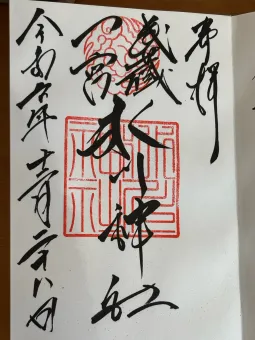 奉拝
武蔵
一宮
氷川神社
令和六年十二月二十八日